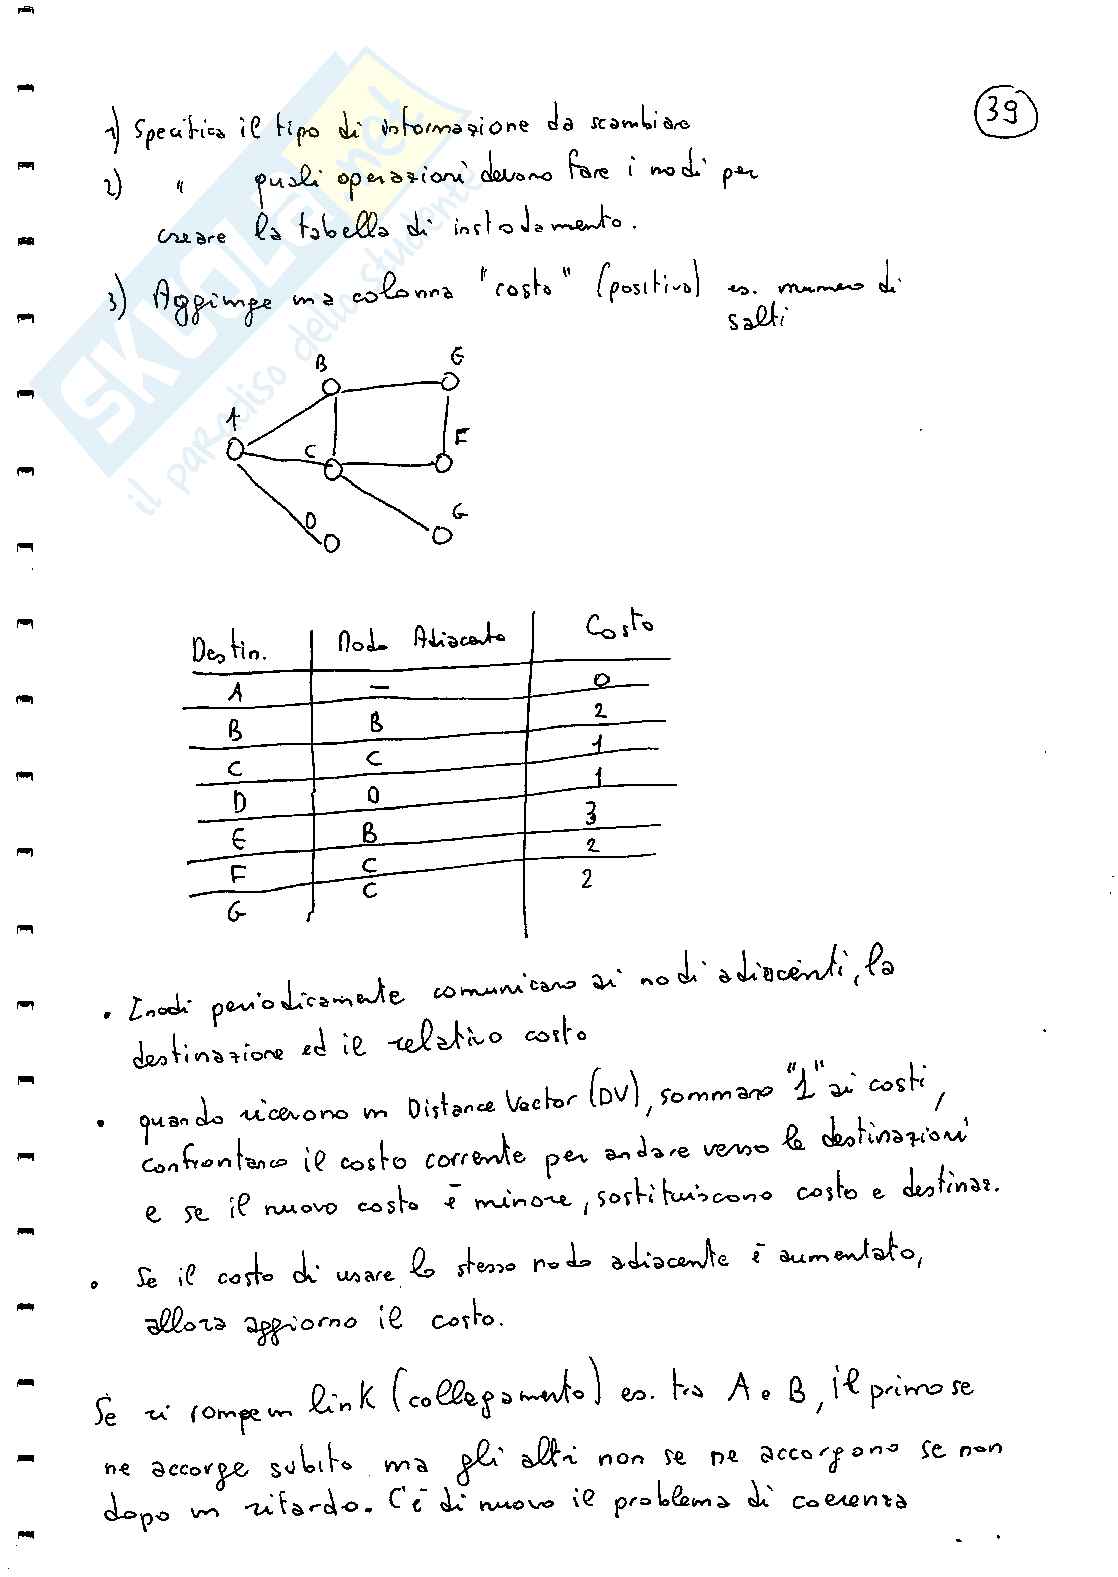 39
1) Specifica il tipo di informazione da scambiare
2) " quali operazioni devono fare i nodi per
creare la tabella di instradamento.
3) Aggiunge una colonna "costo" (positivo) es. numero di
salti
B E
A
C F
D G
Destin. Nodo Adiacente Costo
A — 0
B B 2
C C 1
D D 1
E B 3
F C 2
G C 2
• I nodi periodicamente comunicano ai nodi adiacenti, la
destinazione ed il relativo costo
• quando ricevono un Distance Vector (DV), sommano "1" ai costi,
confrontano il costo corrente per andare verso le destinazioni
e se il nuovo costo è minore, sostituiscono costo e destinaz.
• Se il costo di usare lo stesso nodo adiacente è aumentato,
allora aggiorno il costo.
Se si rompe un link (collegamento) es. tra A e B, il primo se
ne accorge subito ma gli altri non se ne accorgono se non
dopo un ritardo. C'è di nuovo il problema di coerenza
SKUOLA.net
il paradiso dello studente